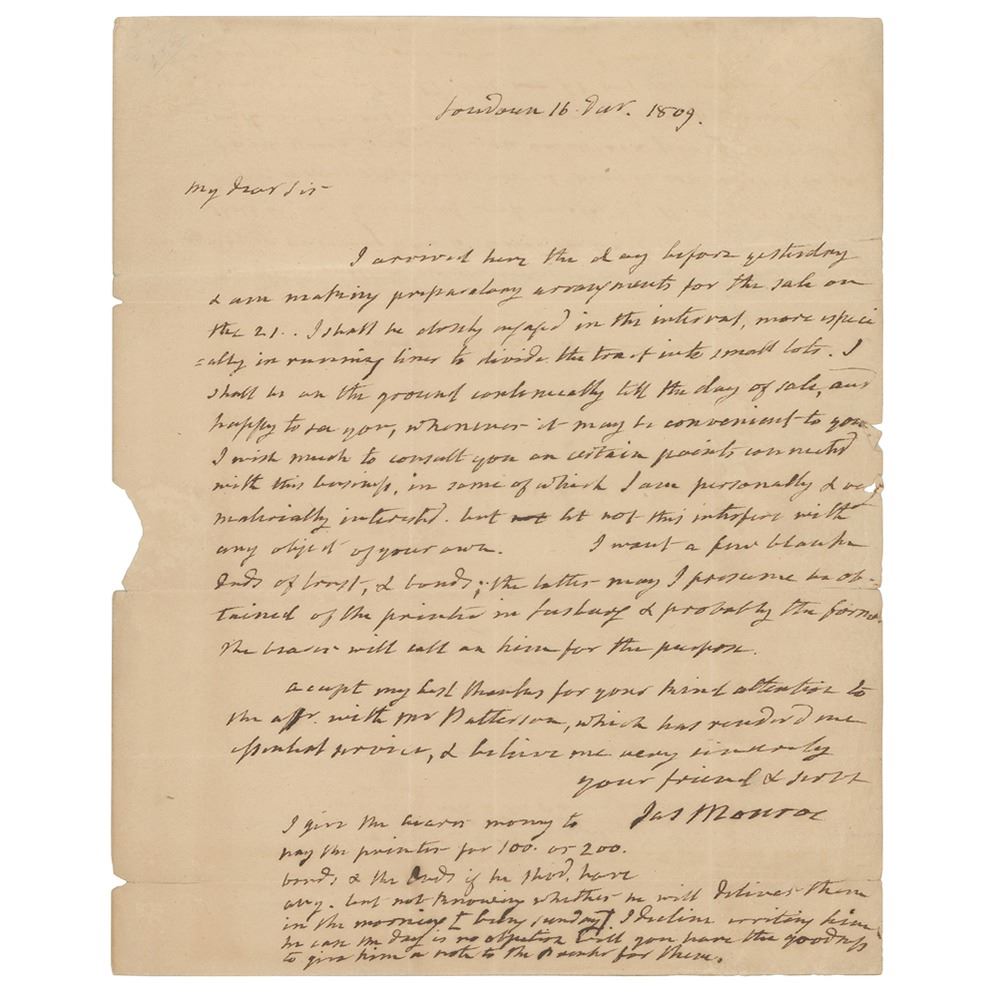 Loudoun 16. Decr. 1809.
My dear Sir
I arrived here the day before yesterday
& am making preparatory arrangments for the sale on
the 21.. I shall be closely engaged in the interval, more especi
=ally in running lines to divide the tract into small lots. I
shall be on the ground continually till the day of sale, and
happy to see you, whenever it may be convenient to you.
I wish much to consult you on certain points connected
with this business, in some of which I am personally & very
materially interested. but not let not this interfere with
any object of your own. I want a few blank
deeds of trust, & bonds; the latter may I presume be ob-
tained of the printer in Leesburg & probably the former
The bearer will call on him for the purpose.
accept my best thanks for your kind attention to
the affr. with Mr Patterson, which has renderd me
essential service, & believe me very sincerely
your friend & servt
Jas Monroe
I give the bearer money to
pay the printer for 100. or 200.
bonds & the deeds if he shod. have
any. but not knowing whether he will deliver them
in the morning [being sunday] I decline writing him
in case the day is no objection will you have the goodness
to give him a note to the for them.